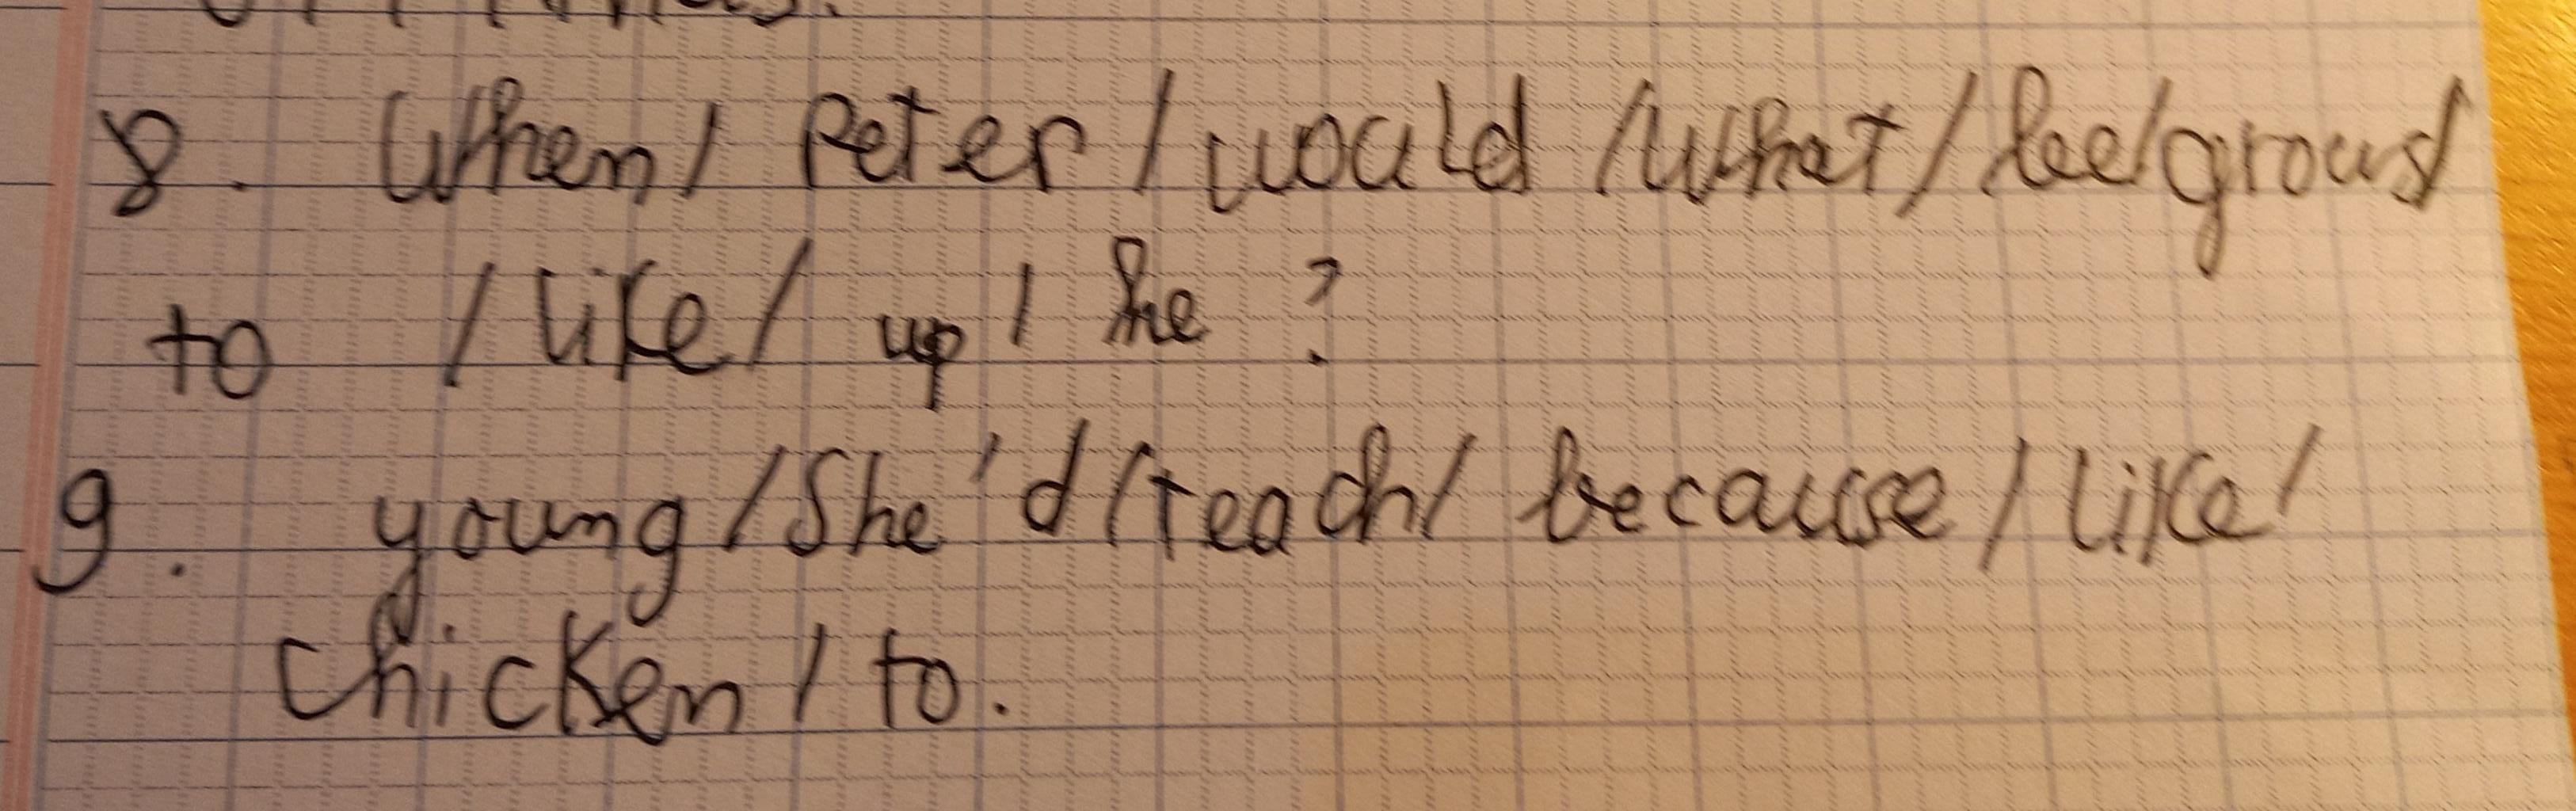 8. When / Peter / would / what / be / grows /
to / like / up / he ?
9. young / She'd / teach / because / like /
chicken / to.